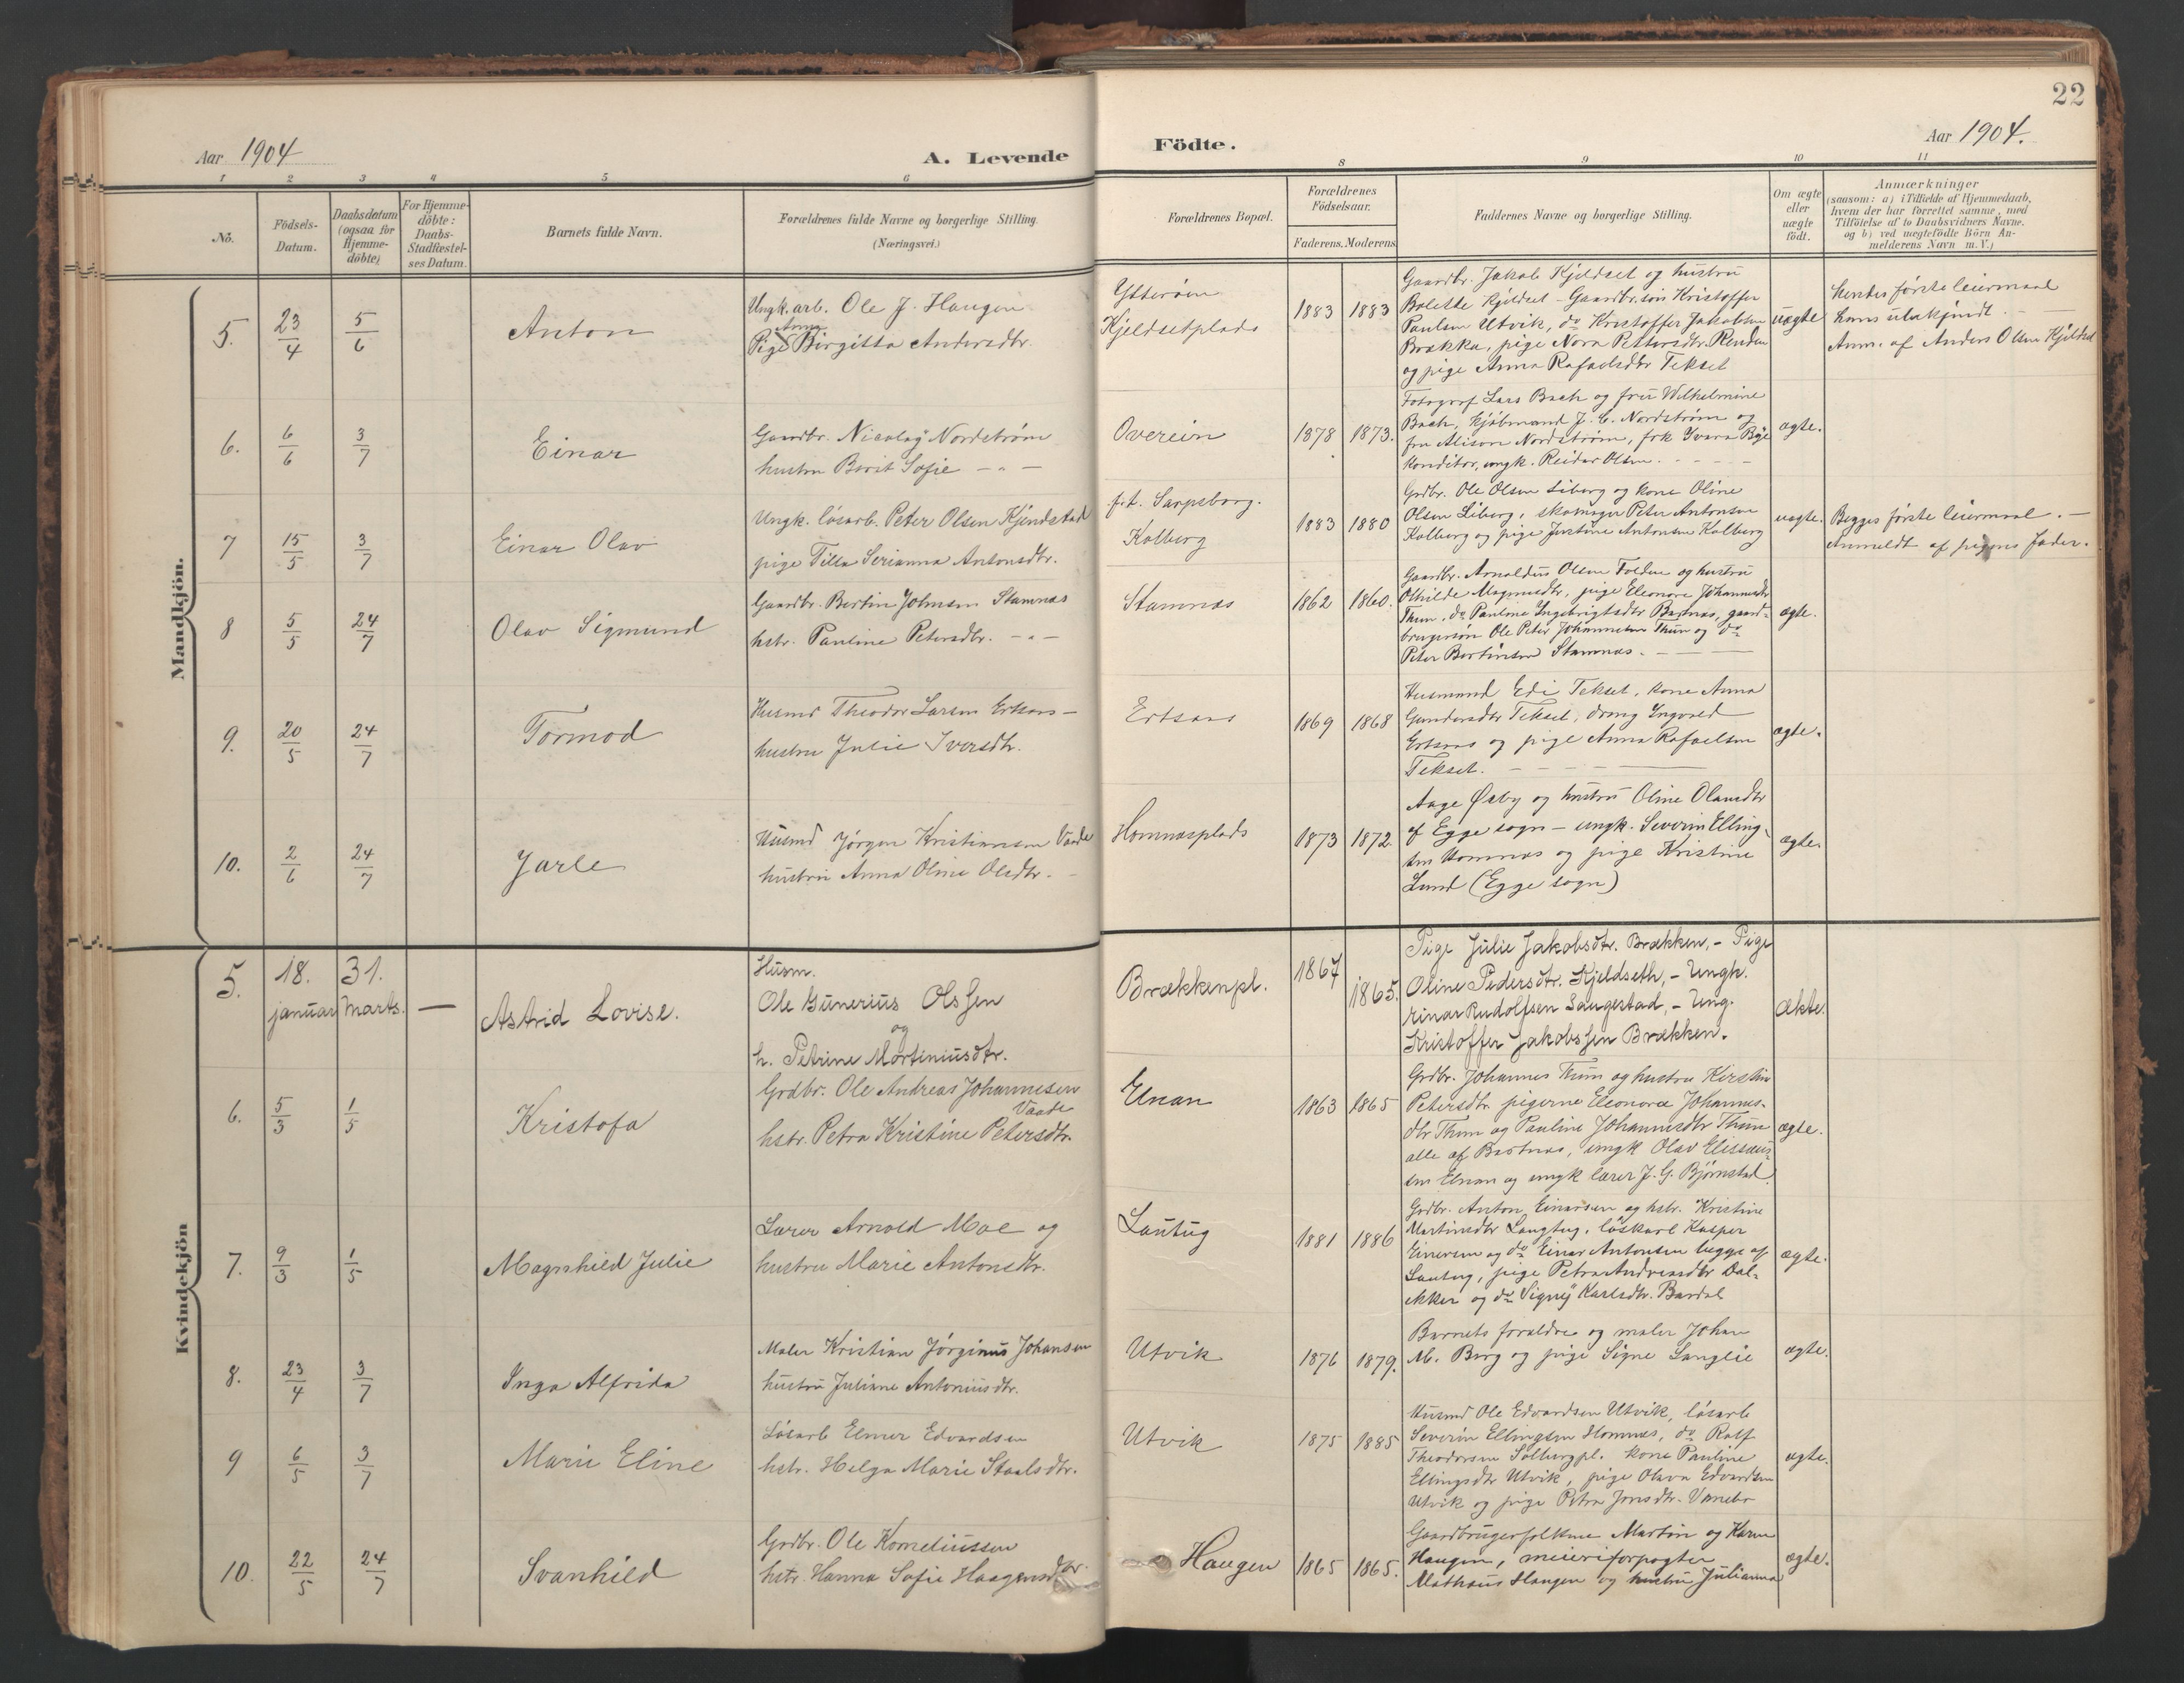 22
Aar 1904
A. Levende
Födte.
Aar 1904.
1 2 3 4 5 6 8 9 10 11
No.
Födsels-
Datum.
Daabsdatum
(ogsaa for
Hjemme-
döbte)
For Hjemme-
döbte:
Daabs-
Stadfæstel-
ses Datum.
Barnets fulde Navn.
Forældrenes fulde Navne og borgerlige Stilling.
(Næringsvei.)
Forældrenes Bopæl.
Forældrenes
Födselsaar.
Faderens. Moderens.
Faddernes Navne og borgerlige Stilling.
Om ægte
eller
uægte
födt.
Anmærkninger
(saasom: a) i Tilfælde af Hjemmedaab,
hvem der har forrettet samme, med
Tilföielse af to Daabsvidners Navne.
og b) ved uægtefödte Börn An-
melderens Navn m. V.)
Mandkjön.
5. 23/4 5/6
Anton
Ungk. arb. Ole J. Haugen
Pige Anna Birgitta Andersdtr.
Ytterøen
Kjeldsetplads
1883 1883
Gaardbr. Jakob Kjeldset og hustru
Bolette Kjeldset - Gaardbr.søn Kristoffer
Paulsen Utvik, do Kristoffer Jakobsen
Brækka, pige Nora Pettersdtr. Renden
og pige Anna Rafaelsdtr Tekset
uægte
hendes første leiermaal
hans ubekjendt.
Anm. af Anders Olsen Kjeldset
6. 6/6 3/7
Einar
Gaardbr. Nicolay Nordstrøm
hustru Berit Sofie - " -
Overein
1878 1873.
Fotograf Lars Bach og fru Wilhelmine
Bach, kjøbmand J. C. Nordstrøm og
fru Alison Nordstrøm, frk Yvara Bye
konditor, ungk. Reidar Olsen.
ægte.
7 15/5 3/7
Einar Olav
Ungk. løsarb. Peter Olsen Kjendstad
pige Tilla Serianna Antonsdtr.
f.t. Sarpsborg.
Kolberg
1883 1880
Grdbr. Ole Olsen Liberg og kone Oline
Olsen Liberg, skomager Peter Antonsen
Kolberg og pige Justine Antonsen Kolberg
uægte.
Begges første leiermaal. -
Anmeldt af pigens fader.
8 5/5 24/7
Olav Sigmund
Gaardbr. Bertin Johnsen Stamnæs
hstr. Pauline Petersdtr. - " -
Stamnæs
1862 1860.
Gaardbr. Arnoldus Olsen Folden og hustru
Othilde Magnusdtr, pige Eleonora Johannesdtr
Thun, do Pauline Ingebrigtsdtr Bastnæs, gaard-
brugersøn Ole Peter Johannesen Thun og do
Peter Bertinsen Stamnæs.
ægte.
9. 20/5 24/7
Tormod
Husmd Theodor Larsen Ertsaas -
hustru Julie Iversdtr.
Ertsaas
1869 1868
Husmand Edi Tekset, kone Anna
Gundersdtr Tekset, dreng Ingvald
Ertsaas og pige Anna Rafaelsen
Tekset.
ægte.
10. 2/6 24/7
Jarle
Husmd Jørgen Kristiansen Vaade
hustru Anna Oline Olsdtr. -
Homnæsplads
1873 1872.
Aage Øsby og hustru Oline Olausdtr
af Egge sogn - ungk. Severin Elling-
sen Homnæs og pige Kristine
Lund (Egge sogn)
ægte.
Kvindekjön
5. 18. januar 31. Marts. —
Astrid Lovise.
Husm.
Ole Gunerius Olssen
og
h. Petrine Martiniusdtr.
Brækkenpl.
1867 1865.
Pige Julie Jakobsdtr. Brækken, - Pige
Oline Pedersdtr. Kjeldseth, - Ungk.
Einar Rudolfsen Saugestad, - Ung.
Kristoffer Jakobssen Brækken.
Ækte.
6. 5/3 1/5
Kristofa
Grdbr. Ole Andreas Johannesen
Vaade
hstr. Petra Kristine Petersdtr.
Elnan
1863 1865
Grdbr. Johannes Thun og hustru Kirstin
Petersdtr pigerne Eleonora Johannes-
dtr Thun og Pauline Johannesdtr Thun
alle af Bastnæs, ungk Olav Elisæus-
sen Elnan og ungk lærer J. G. Bjørnstad.
ægte.
7. 9/3 1/5
Magnhild Julie
Lærer Arnold Moe og
hustru Marie Antonsdtr.
Lautug
1881 1886
Grdbr. Anton Einarsen og hstr. Kristine
Martinsdtr Langtug, løskarl Kasper
Einersen og do Einar Antonsen begge af
Lautug, pige Petra Andreasdtr Dal-
ekker og do Signy Karlsdtr. Bardal
ægte.
8. 23/4 3/7
Inga Alfrida
Maler Kristian Jørginus Johansen
hustru Juliane Antoniusdtr.
Utvik
1876 1879.
Barnets forældre og maler Johan
M. Berg og pige Signe Langlie
ægte.
9 6/5 3/7
Marie Eline
Løsarb Elmer Edvardsen
hstr. Helga Marie Staalsdtr.
Utvik
1875 1885
Husmd Ole Edvardsen Utvik, løsarb
Severin Ellingsen Homnæs, do Rolf
Theodorsen Solbergpl. kone Pauline
Ellingsdtr Utvik, pige Olava Edvardsen
Utvik og pige Petra Jonsdtr. Vanebo
ægte.
10. 22/5 24/7
Svanhild
Grdbr. Ole Korneliussen
hstr. Hanna Sofie Haagensdtr.
Haugen
1865 1865.
Gaardbrugerfolkene Martin og Karen
Haugen, meieriforpagter
Mathæus Haugen og hustru Julianna
ægte.